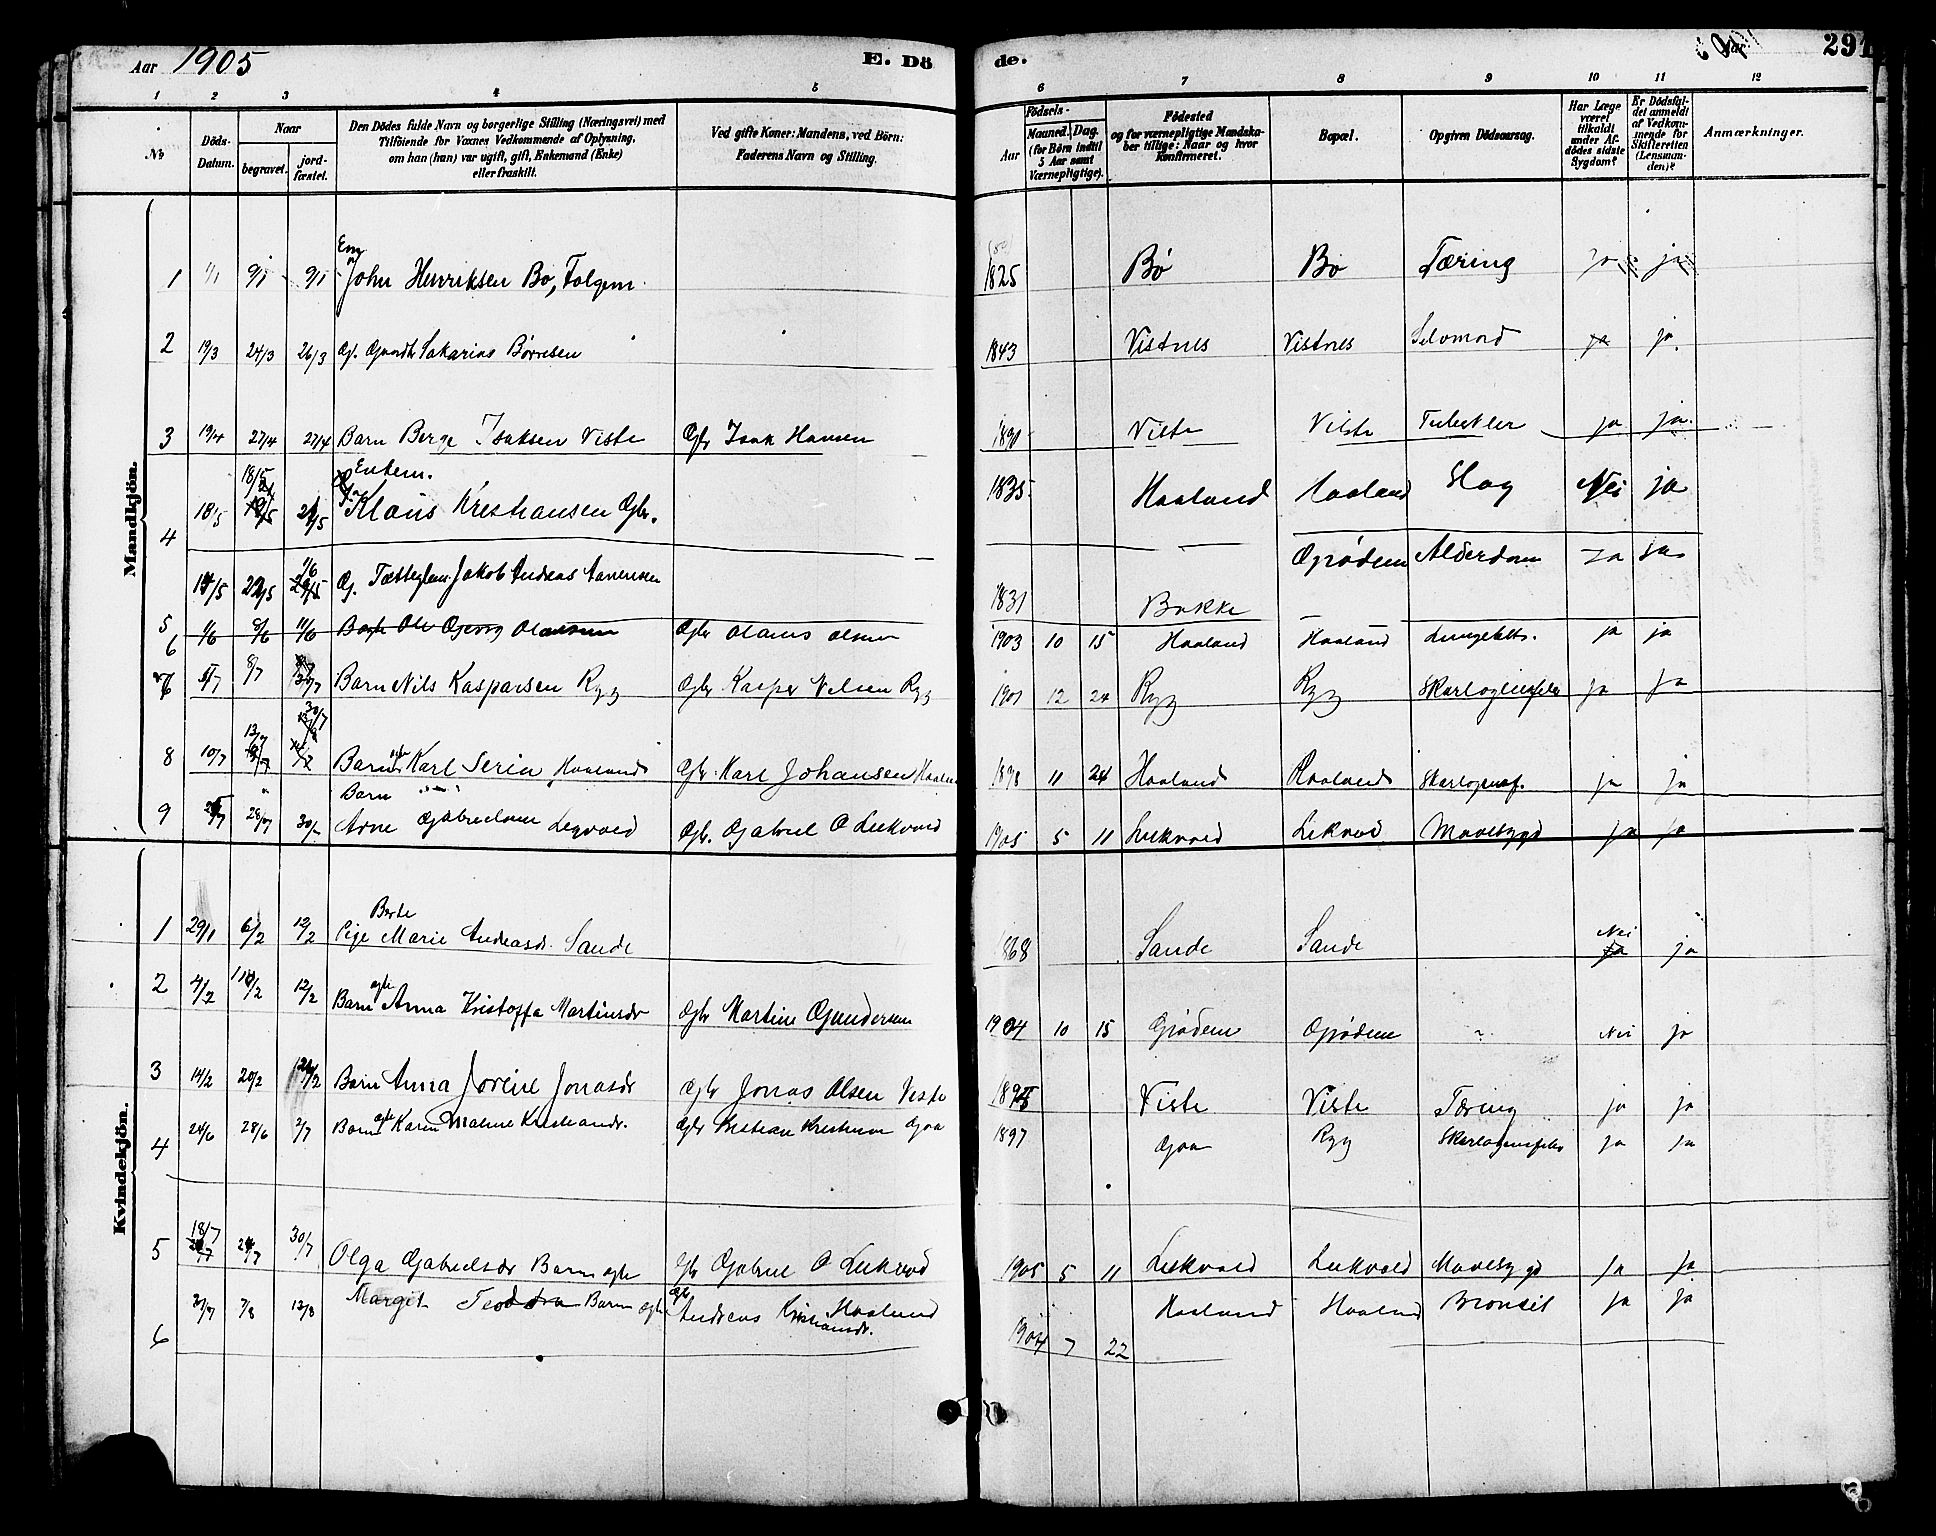 Aar 1905 E. Dö de. 291
1 2 3 4 5 6 7 8 9 10 11 12
No Döds-Datum. Naar begravet. jordfæstet. Den Dödes fulde Navn og borgerlige Stilling (Næringsvei) med Tilföiende for Voxnes Vedkommende af Oplysning, om han (hun) var ugift, gift, Enkemand (Enke) eller fraskilt. Ved gifte Koner: Mandens, ved Börn: Faderens Navn og Stilling. Födsels- Aar Maaned. Dag. (for Börn indtil 5 Aar samt Værnepligtige). Födested og for værnepligtige Mandskaber tillige: Naar og hvor konfirmeret. Bopæl. Opgiven Dödsaarsag. Har Læge været tilkaldt under Afdödes sidste Sygdom? Er Dödsfaldet anmeldt af Vedkommende for Skifteretten (Lensmanden)? Anmærkninger.
Mandkjön.
1 1/1 9/1 9/1 Em John Henriksen Bø, Folgem. 1825 Bø Bø Tæring ja ja
2 19/3 24/3 26/3 G. Gaardb Sakarias Børresen 1843 Vistnes Vistnes Selvmord ja ja.
3 19/4 27/4 27/4 Barn Berge Isaksen Viste Gbr Isak Hansen 1890 Viste Viste Tuberkler ja ja.
4 18/5 18/5 21/5 Enkem. Klaus Kristiansen Gbr. 1835 Haaland Haaland Slag Nei ja
5 14/5 22/5 1/6 G. Jakob Andreas 1831 Bakke Grødem Alderdom Ja Ja
6 1/6 8/6 11/6 Barn Ole Georg Olaussen Gbr Olaus Olsen 1903 10 15 Haaland Haaland Lungebet. ja ja
7 5/7 8/7 Barn Nils Kasparsen Rygg Gbr Kasper Nilsen Rygg 1901 12 24 Rygg Rygg Skarlagensfeber ja ja
8 10/7 13/7 30/7 Barn ægte Karl Serin Haaland Gbr. Karl Johansen Haaland 1898 11 24 Haaland Haaland Skarlagensf. ja ja
9 28/7 30/7 Barn Arne Gabrielsen Leqvold Gbr. Gabriel O Leikvold 1905 5 11 Leikvold Leikvold Mavesyge ja ja
Kvindekjön.
1 29/1 6/2 12/2 Pige Berte Marie Andreasdr. Sande 1868 Sande Sande Nei ja
2 4/2 11/2 12/2 Barn ægte Anna Kristoffa Martinsdr Gbr Martin Gundersen 1904 10 15 Grødem Grødem Nei ja
3 14/2 20/2 Barn Anna Joreine Jonasdr Gbr Jonas Olsen Viste 1895 Viste Viste Tæring ja ja
4 24/6 28/6 2/7 Barn ægte Karen Malene Kristiansdr. Gbr Kristian Kristiansen Goa 1897 Goa Rygg Skarlagensfeber ja ja
5 18/7 24/7 30/7 Olga Gabrielsdr Barn ægte Gbr Gabriel O Leikvold 1905 5 11 Leikvold Leikvold Mavesyge ja ja
6 31/7 7/8 13/8 Margit Teodora Barn ægte Gbr Andreas Kristiansen Haaland 1904 7 22 Haaland Haaland Bronkit ja ja